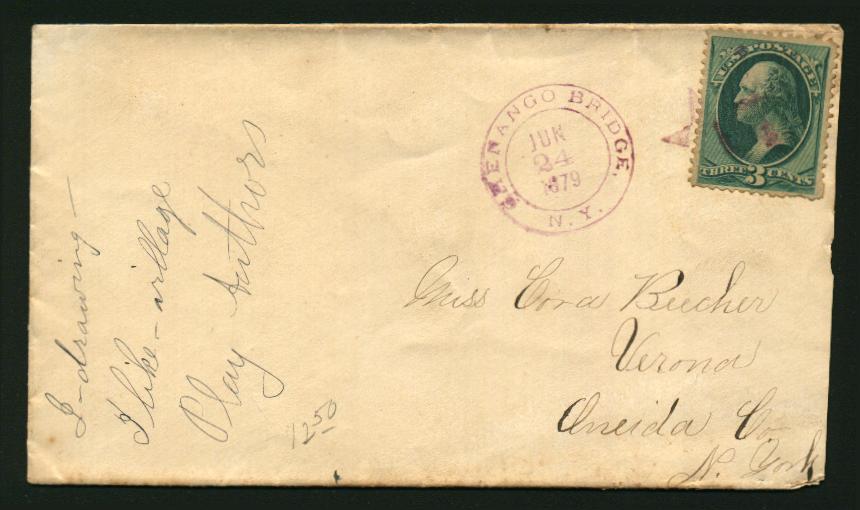 U.S. POSTAGE
THREE 3 CENTS
CHENANGO BRIDGE,
JUN
24
1879
N. Y.
Miss Cora Beecher
Verona
Oneida Co
N. York
I-drawing-
I like-village
Play Authors
12.50